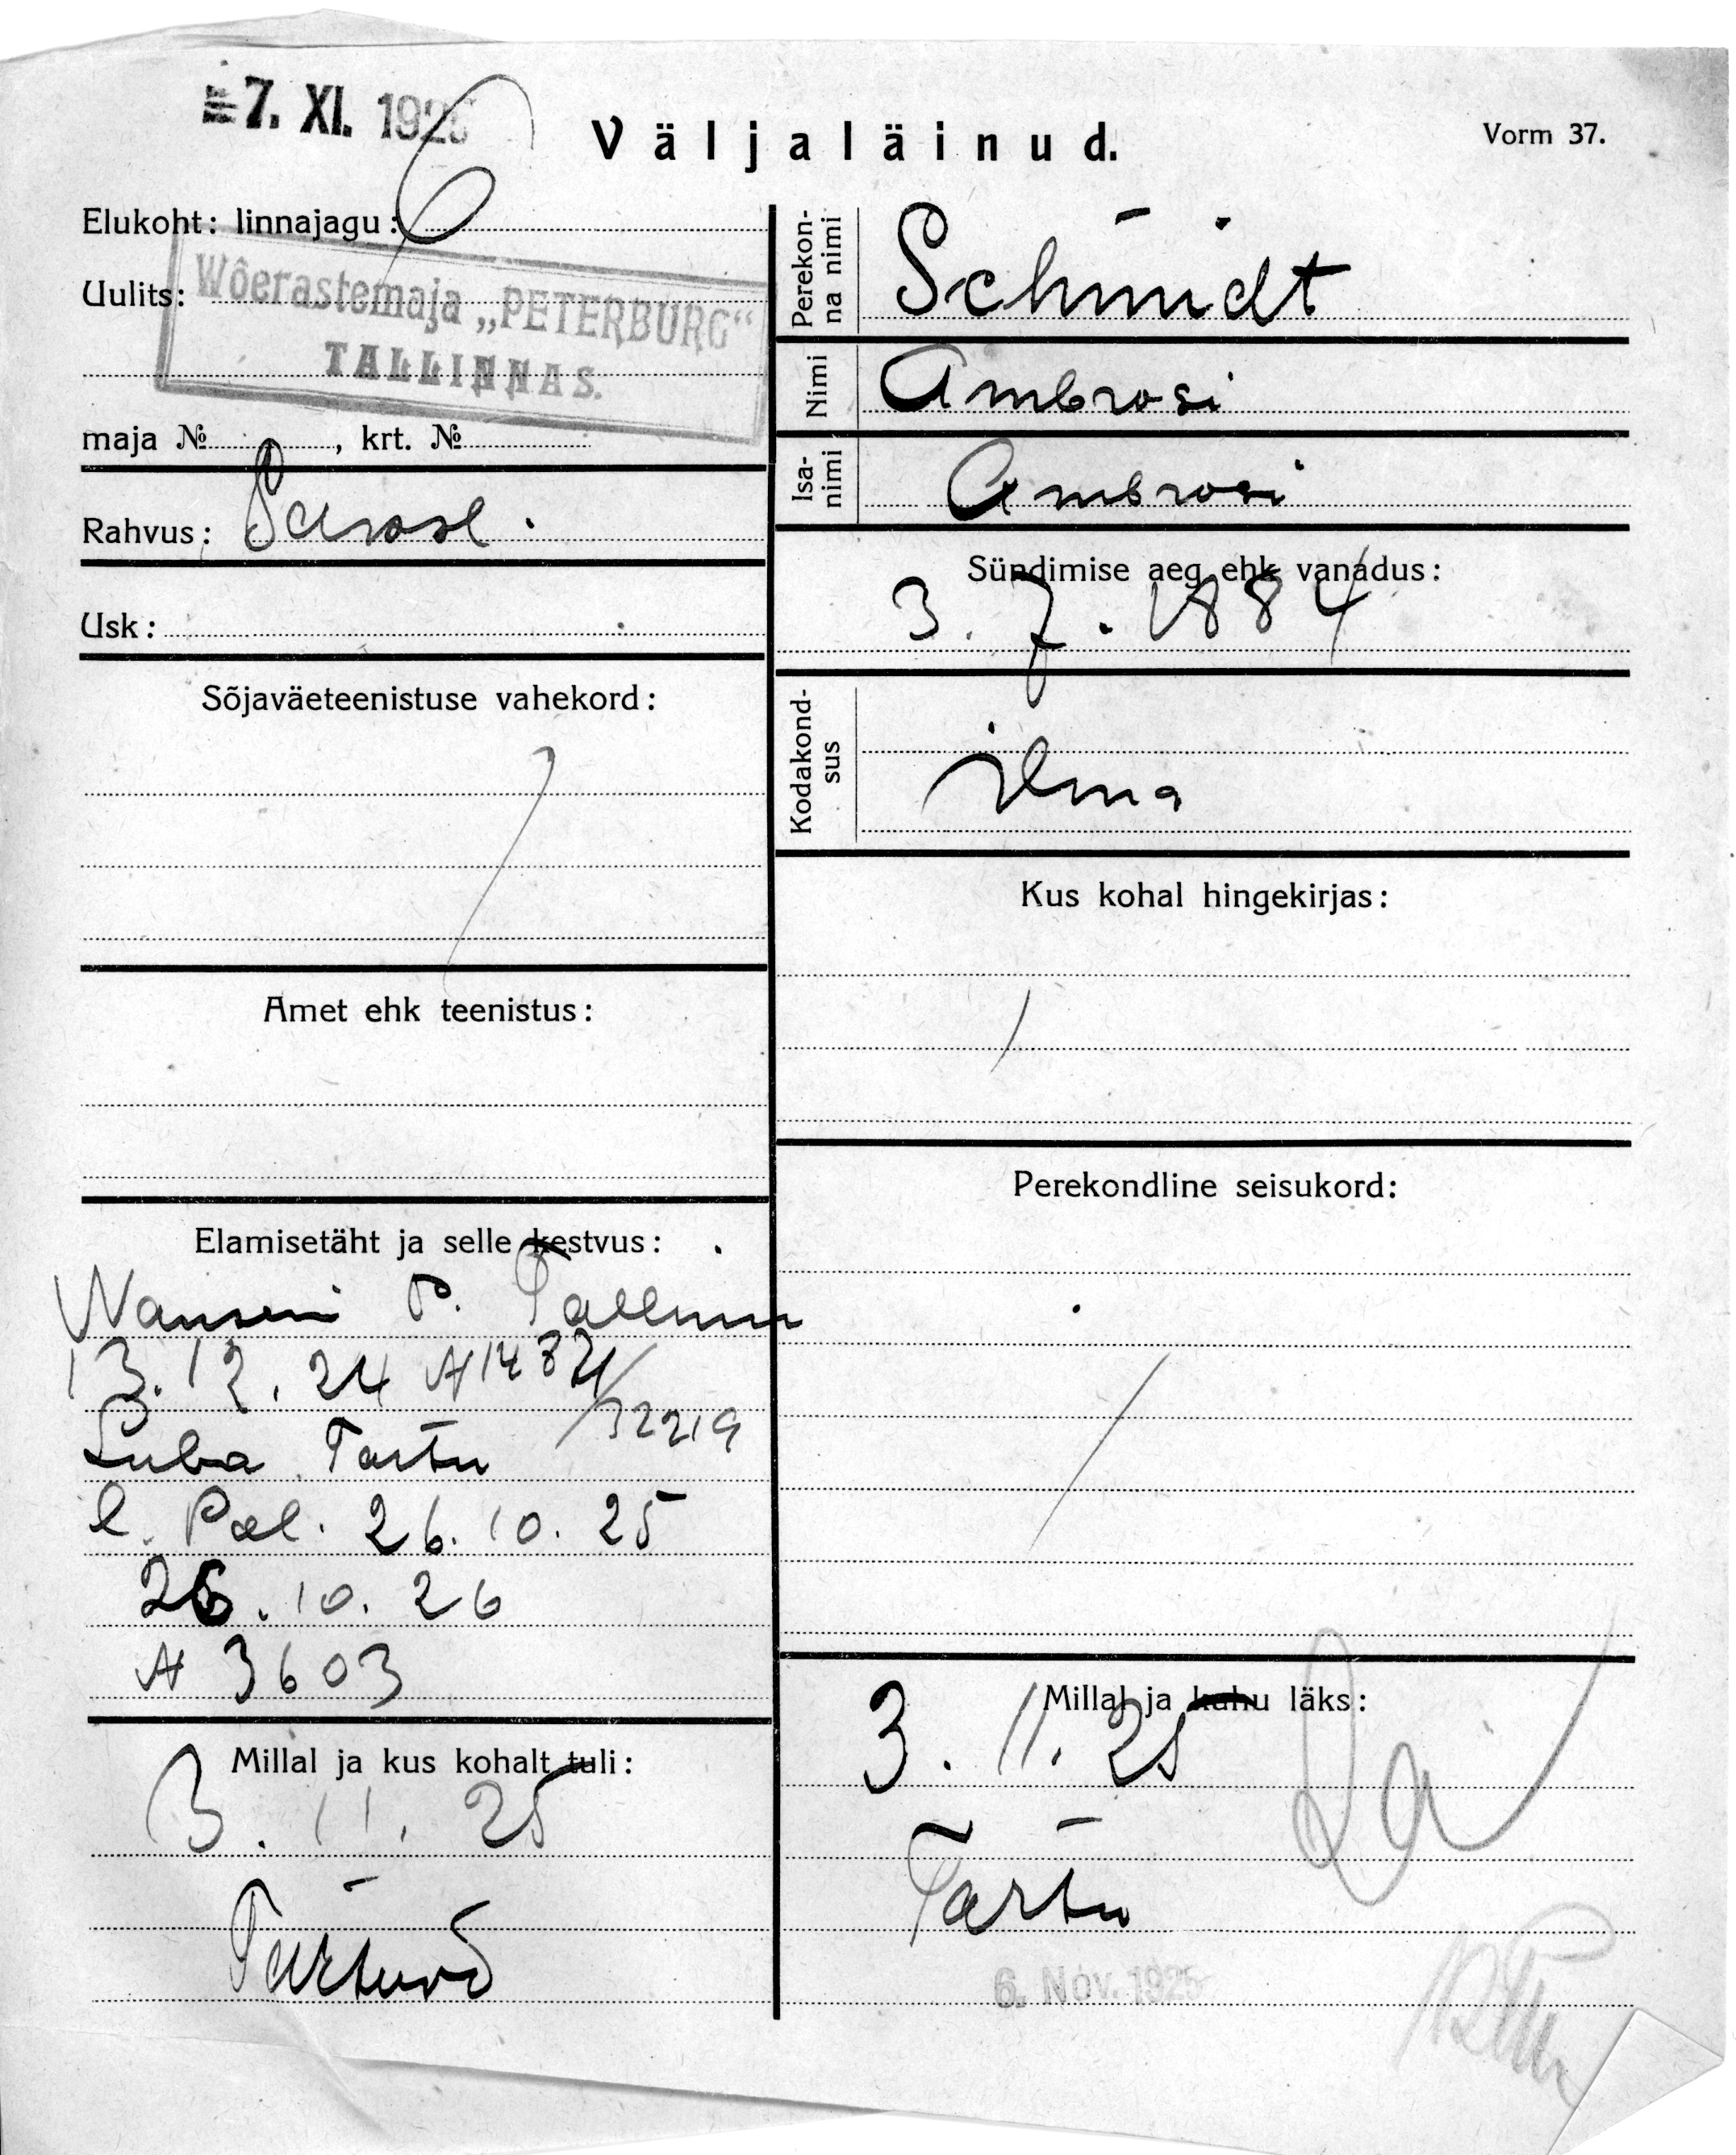 7. XI. 1925
Väljaläinud.
Vorm 37.
Elukoht: linnajagu: 6
Uulits:
Wõerastemaja „PETERBURG“
TALLINNAS.
maja №, krt. №
Rahvus: Saksl.
Usk:
Sõjaväeteenistuse vahekord:
Amet ehk teenistus:
Elamisetäht ja selle kestvus:
Nanseni P. Tallinn
13.12.24 N
32219
Luba Tartu
l. Pol. 26.10.25
26.10.26
N 3603
Millal ja kus kohalt tuli:
3.11.25
Tartust
Perekon-
na nimi
Schmidt
Nimi
Ambrosi
Isa-
nimi
Ambrosi
Sündimise aeg ehk vanadus:
3.7.1884
Kodakond-
sus
ilma
Kus kohal hingekirjas:
Perekondline seisukord:
Millal ja kuhu läks:
3.11.25
Tartu
6. Nov. 1925